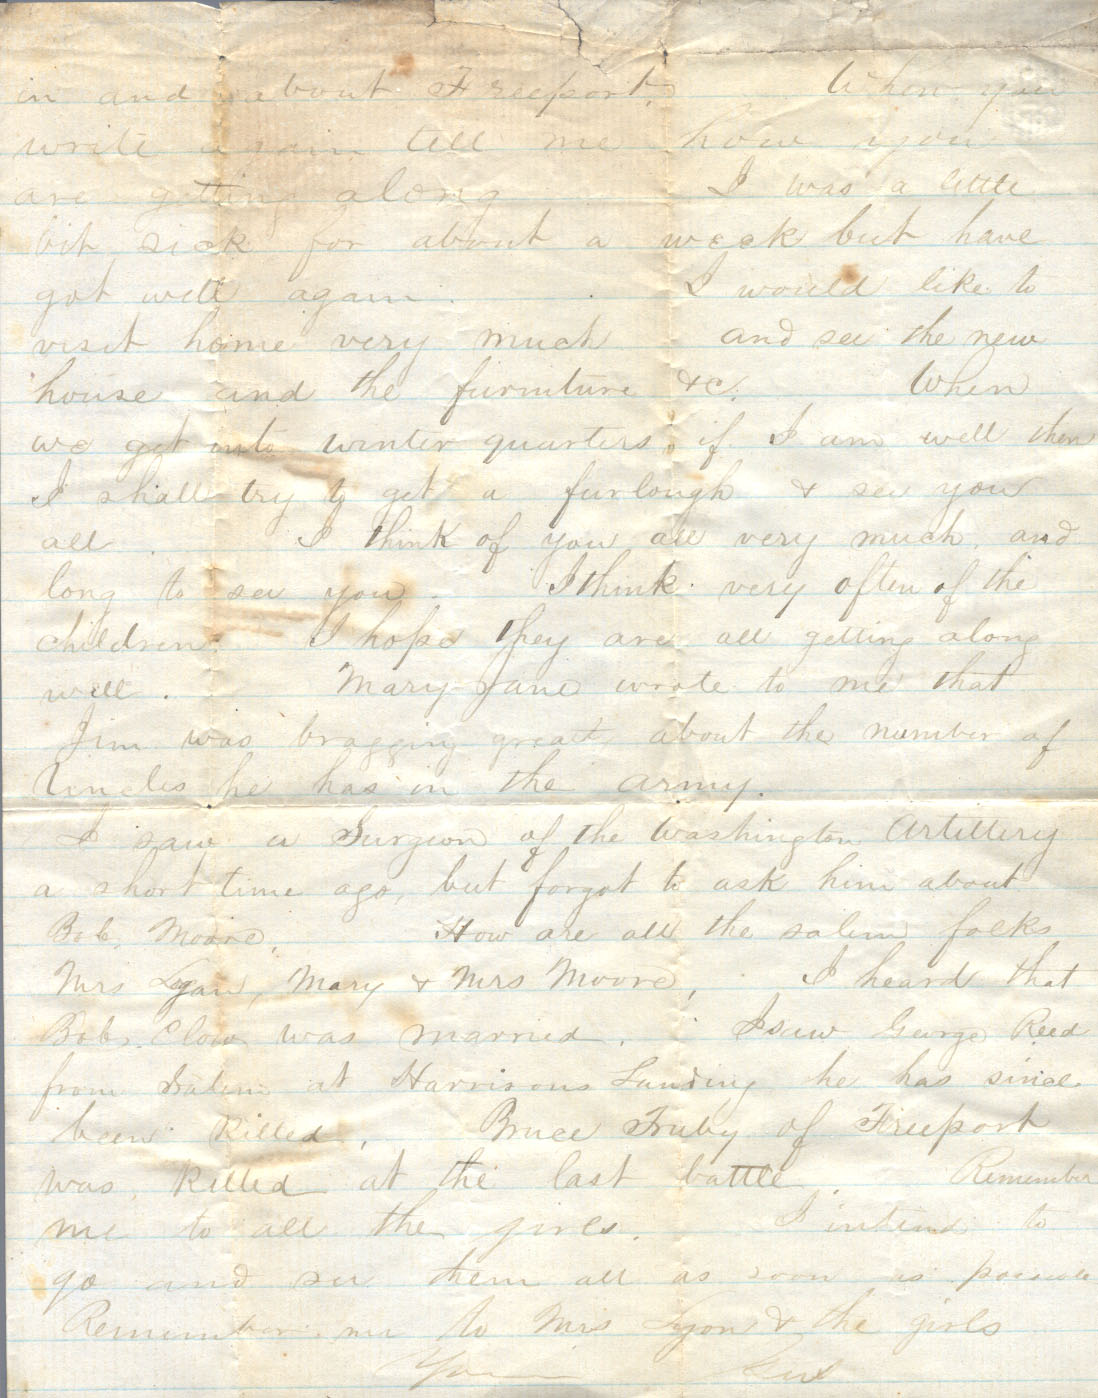 in and about Freeport. When you
write again tell me how you
are getting along I was a little
bit sick for about a week but have
got well again. I would like to
visit home very much and see the new
house and the furniture &c. When
we get into winter quarters, if I am well then
I shall try to get a furlough & see you
all. I think of you all very much and
long to see you. I think very often of the
children. I hope they are all getting along
well. Mary Jane wrote to me that
Jim was bragging great about the number of
Uncles he has in the army.
I saw a Surgeon of the Washington Artillery
a short time ago, but forgot to ask him about
Bob. Moore. How are all the salem folks
Mrs Lyon, Mary & Mrs Moore, I heard that
Bob. was married. I saw George Reed
from Salem at Harrisons Landing he has since
been killed, Bruce Truby of Freeport
was killed at the last battle Remember
me to all the girls. I intend to
go and see them all as soon as possible
Remember me to Mrs Lyon & the girls